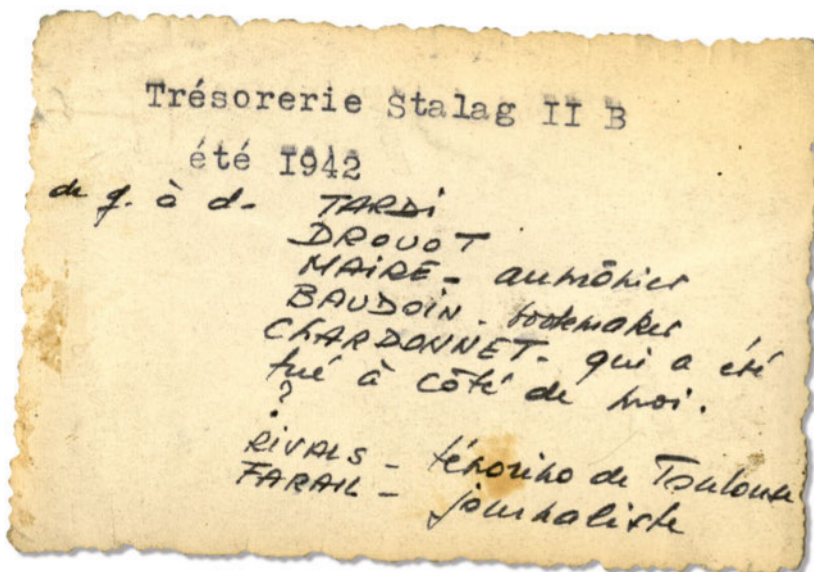 Trésorerie Stalag II B
été I942
de g. à d. TARDI
DROUOT
MAIRE - aumônier
BAUDOIN - bookmaker
CHARDONNET - qui a été
tué à côté de moi.
?
RIVALS - ténorino de Toulouse
FARAIL - journaliste